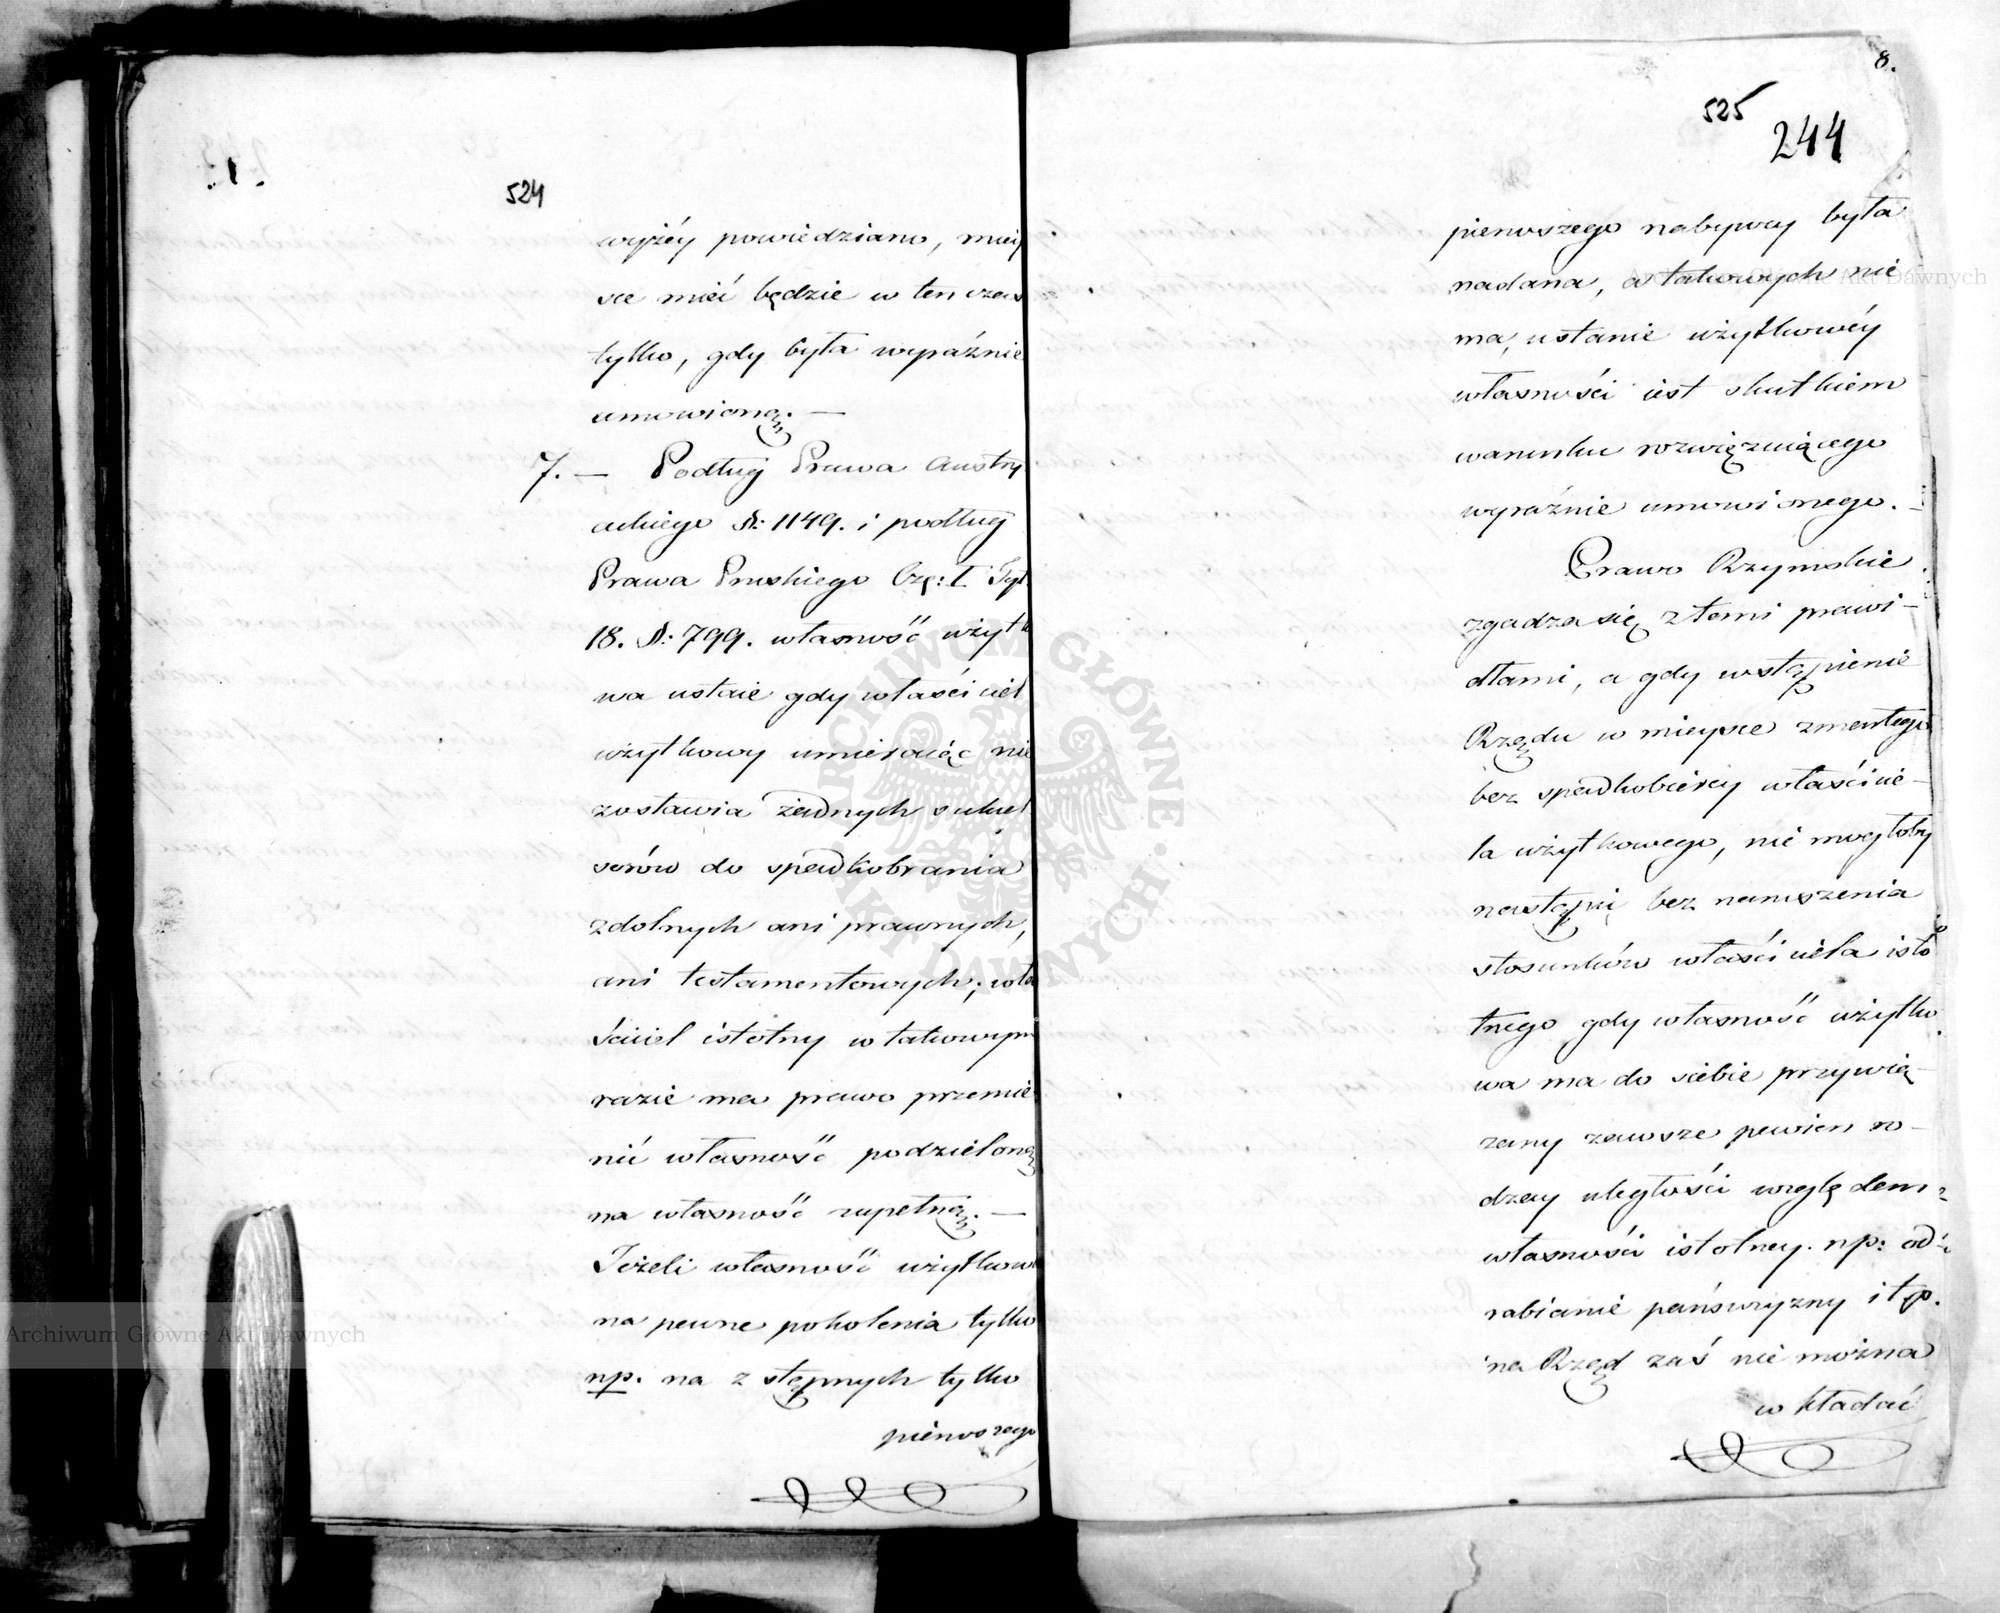 524
wyżéy powiedziano, miey
sce mieć będzie w ten czas
tylko, gdy była wyraźnie
umowioną. —
7. — Podług Prawa Austry
ackiego §: 1149. i podług
Prawa Pruskiego Czę: I Tyt
18. §: 799. własność użytk
wa ustaie gdy właściciel
użytkowy umieraiąc nie
zostawia żadnych sukces
sorów do spadkobrania
zdolnych ani prawnych,
ani testamentowych; wła
ściciel istotny w takowym
razie ma prawo przemie
nić własność podzieloną
na własność zupełną. —
Jeżeli własność użytkowa
na pewne pokolenia tylko
np. na zstępnych tylko
pierwszego
8.
525
244
pierwszego nabywcy była
nadana, a takowych nie
ma, ustanie użytkowéy
własności iest skutkiem
warunku rozwięzuiącego
wyraźnie umowionego. —
Prawo Rzymskie
zgadza się z temi prawi-
dłami, a gdy wstąpienie
Rządu w mieysce zmarłego
bez spadkobiercy właścicie-
la użytkowego, nie mogłoby
nastąpić bez naruszenia
stosunków właściciela isto
tnego gdy własność użytko
wa ma do siebie przywią-
zany zawsze pewien ro-
dzay uległości względem
własności istotney. np: od-
rabianie pańszczyzny i t.p.
na Rząd zaś nie można
wkładać
Archiwum Główne Akt Dawnych
Archiwum Główne Akt Dawnych
ARCHIWUM GŁÓWNE AKT DAWNYCH